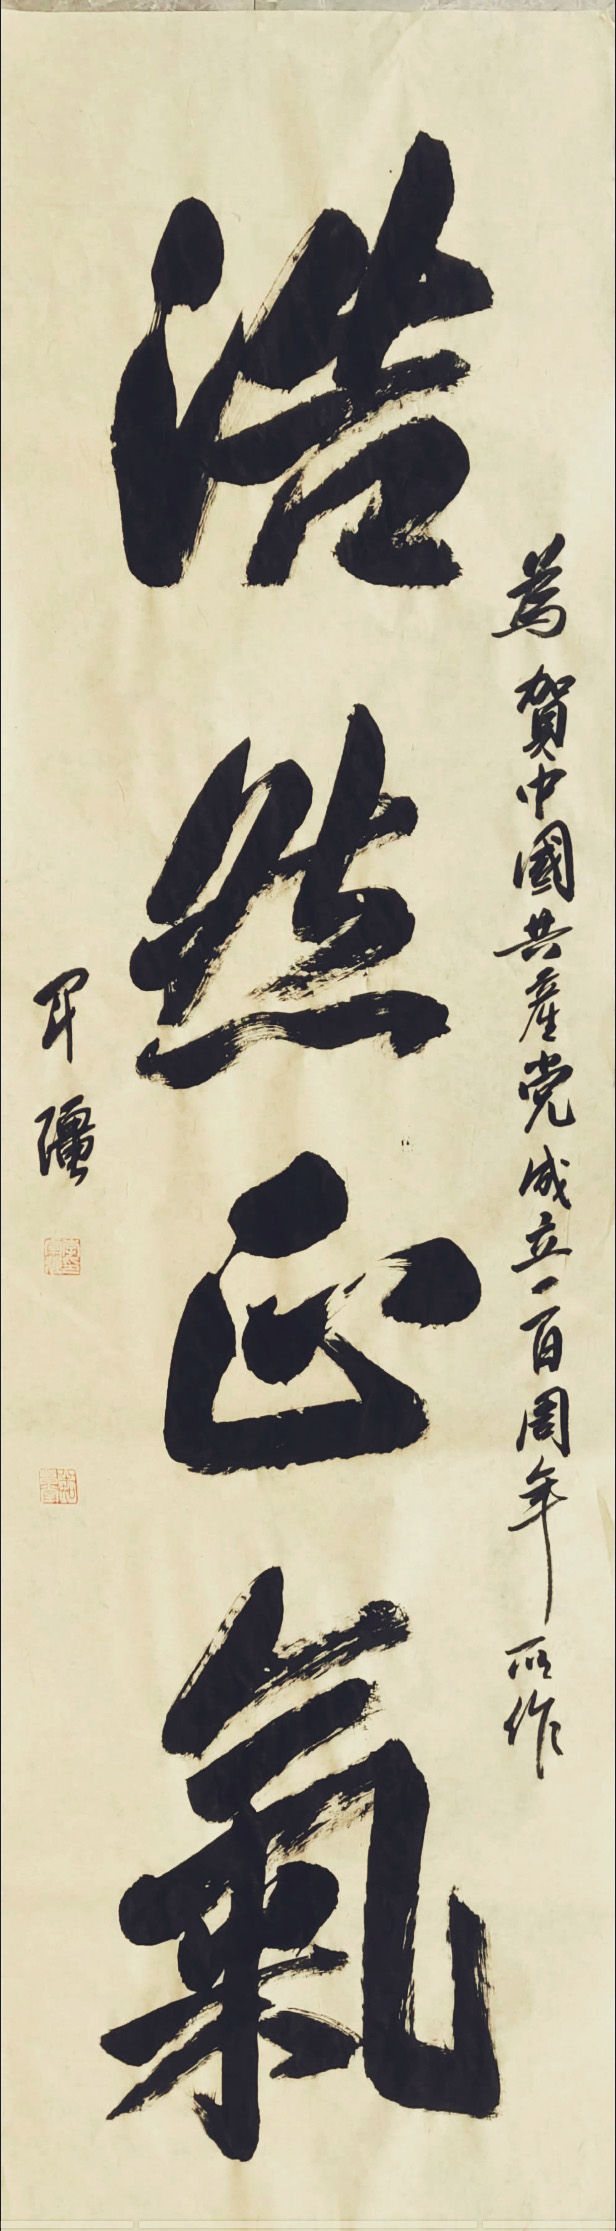 為賀中國共產党成立一百周年所作
浩然正氣